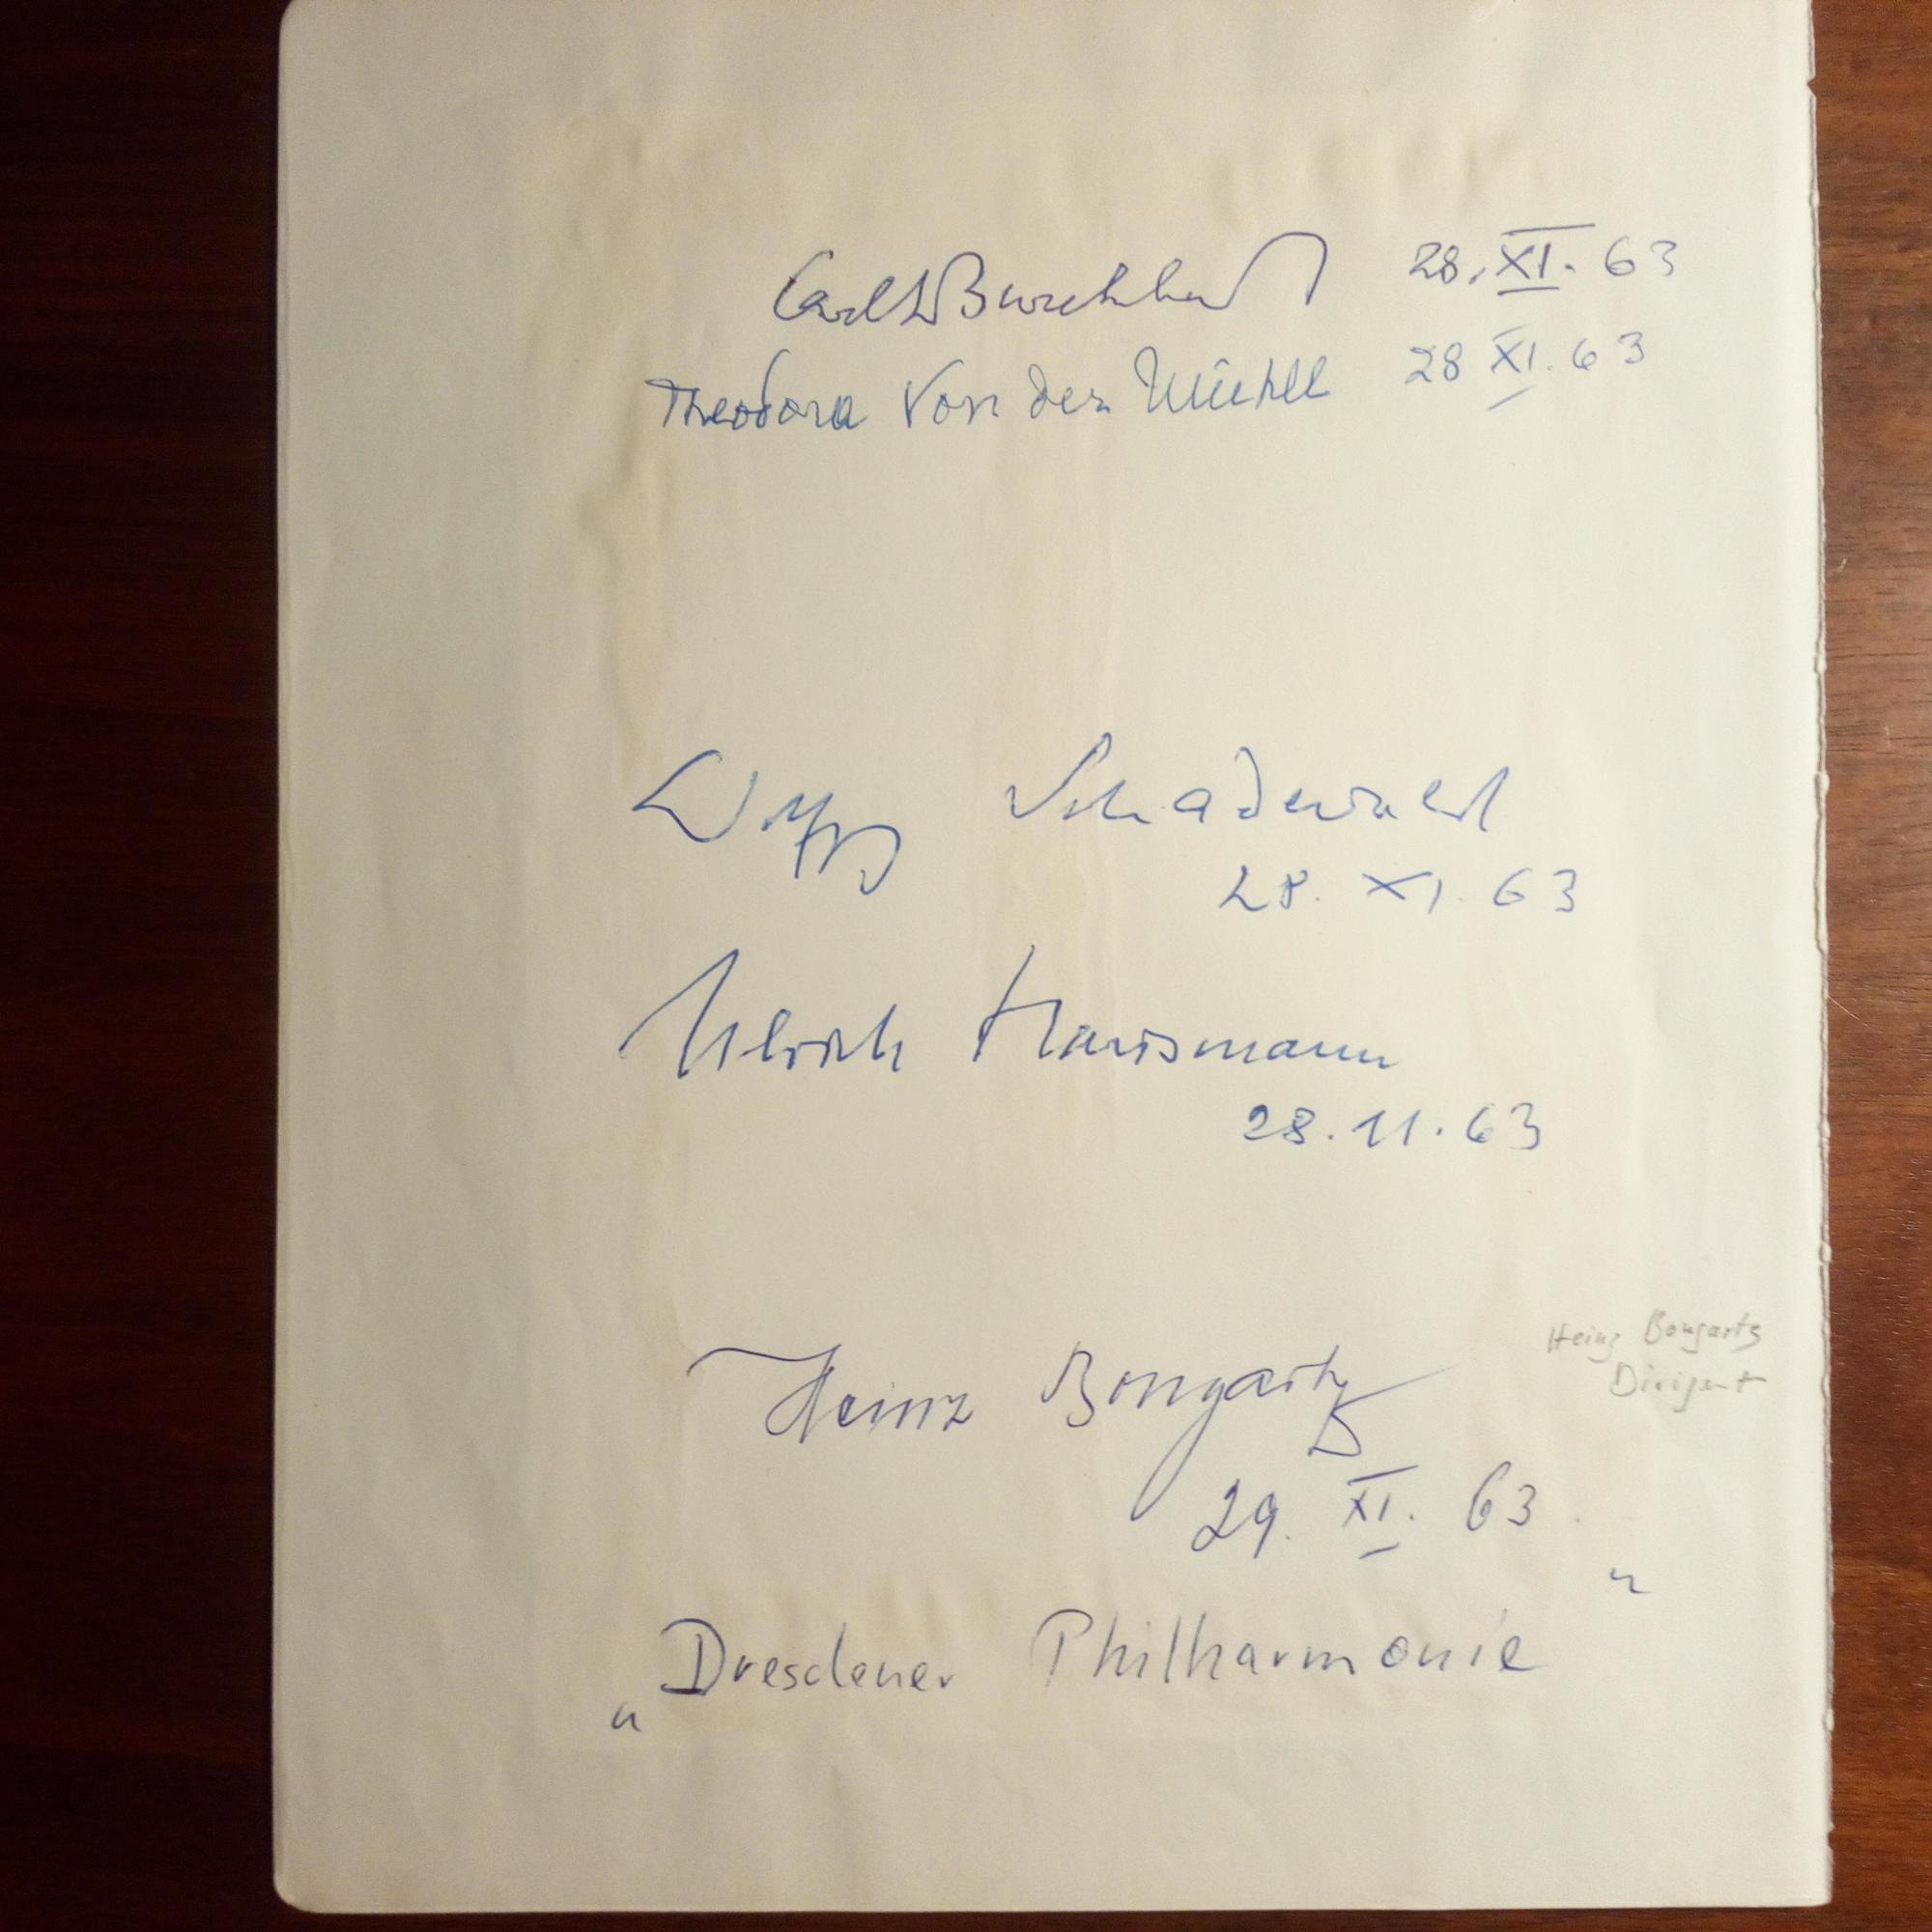 Carl J Burckhardt 28. XI. 63
Theodora Von der Mühll 28 XI. 63
Wolfg Schadewaldt
28. XI. 63
Ulrich Hausmann
28.11.63
Heinz Bongartz
Heinz Bongartz
Dirigent
29. XI. 63.
„Dresdener Philharmonie“